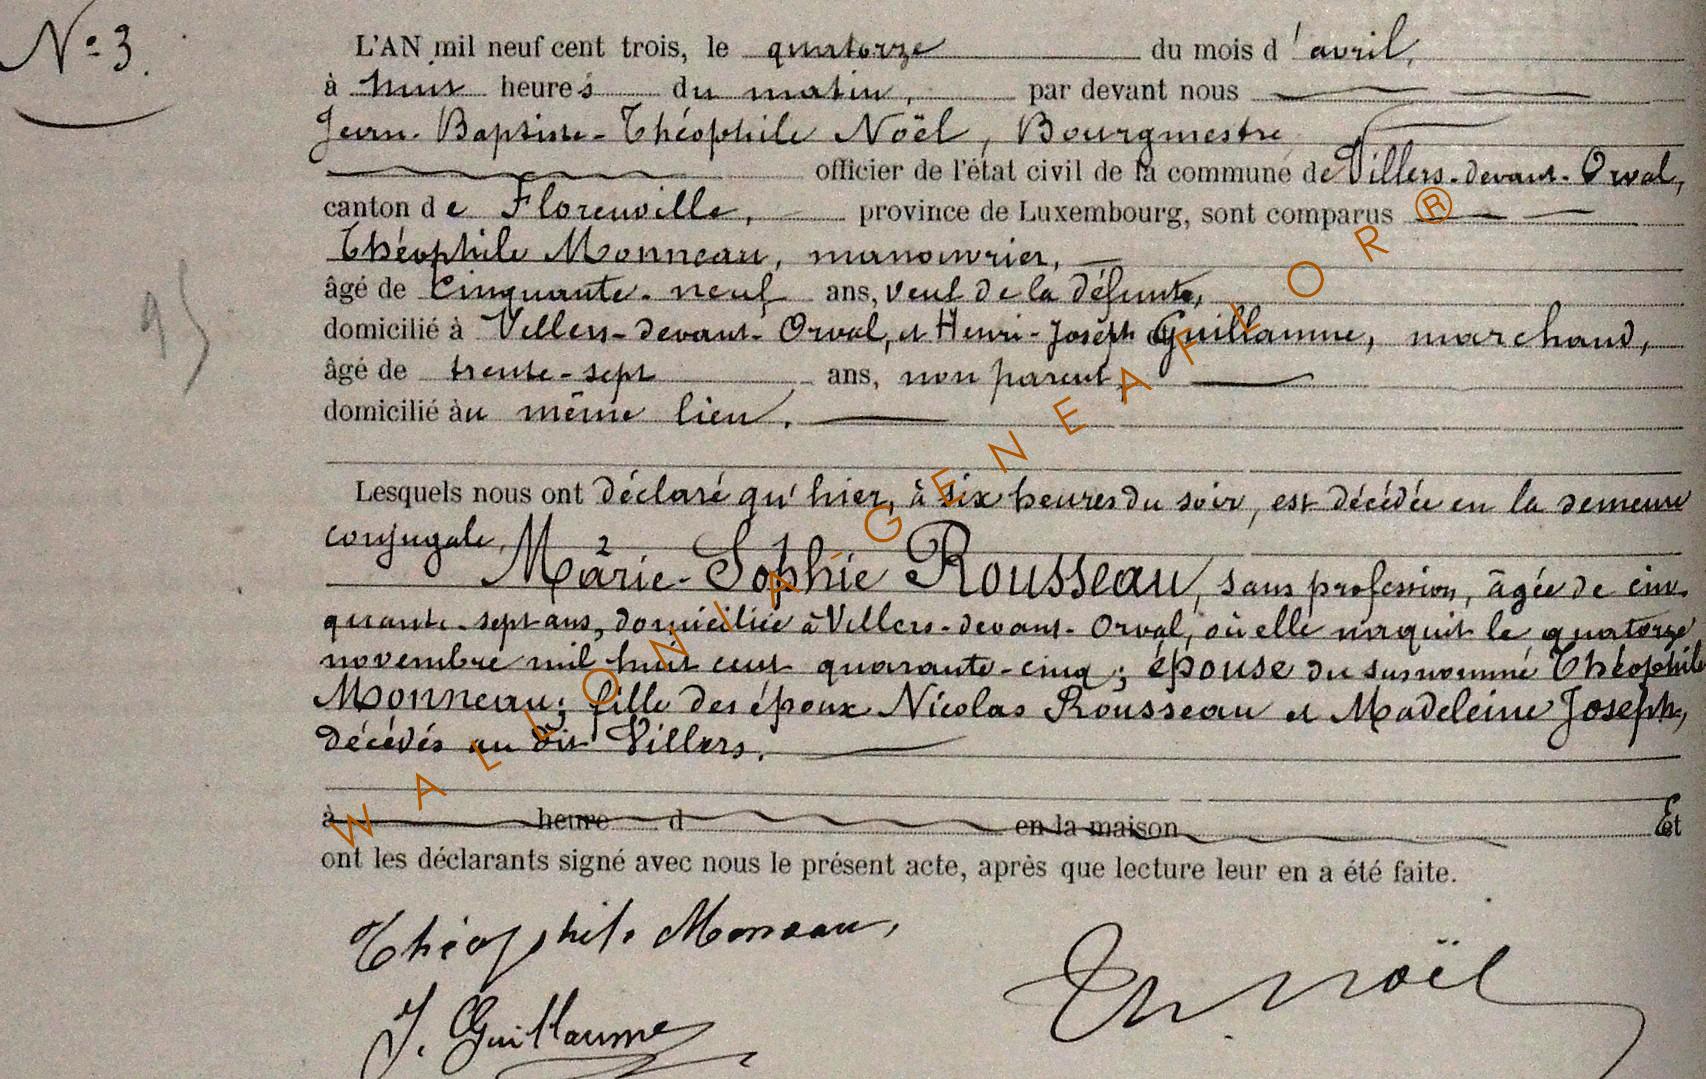 Nº 3.
L'AN mil neuf cent trois, le quatorze du mois d'avril,
à huit heures du matin, par devant nous
Jean-Baptiste-Théophile Noël, Bourgmestre
officier de l'état civil de la commune de Villers-devant-Orval,
canton de Florenville, province de Luxembourg, sont comparus
Théophile Monneau, manouvrier,
âgé de cinquante-neuf ans, veuf de la défunte,
domicilié à Villers-devant-Orval, et Henri-Joseph Guillaume, marchand,
âgé de trente-sept ans, non parent,
domicilié au même lieu.
95
Lesquels nous ont déclaré qu'hier, à six heures du soir, est décédée en la demeure
conjugale,
2 1
Marie-Sophie Rousseau, sans profession, âgée de cin-
quante-sept ans, domiciliée à Villers-devant-Orval, où elle naquit le quatorze
novembre mil huit cent quarante-cinq; épouse du susnommé Théophile
Monneau; fille des époux Nicolas Rousseau et Madeleine Joseph,
décédés au dit Villers.
à heure d en la maison Et
ont les déclarants signé avec nous le présent acte, après que lecture leur en a été faite.
Théophile Monneau,
Th Noël
J. Guillaume
WALLONIA - GENEAFLOR®